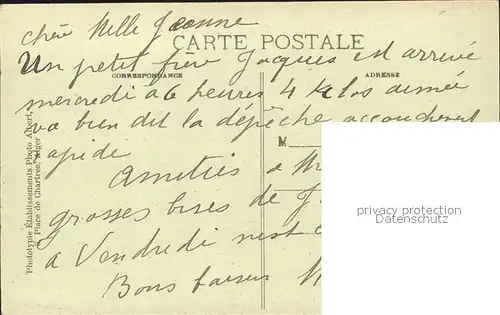 chère Melle Jeanne
CARTE POSTALE
Un petit frère Jacques est arrivé
CORRESPONDANCE
ADRESSE
mercredi a 6 heures 4 kilos aimée
va bien dit la dépêche accouchement
rapide
M
Amitiés a
grosses bises de J
a Vendredi
Bons baisers
Phototypie Etablissements Photo Albert,
Place de Chartres, Alger
privacy protection
Datenschutz